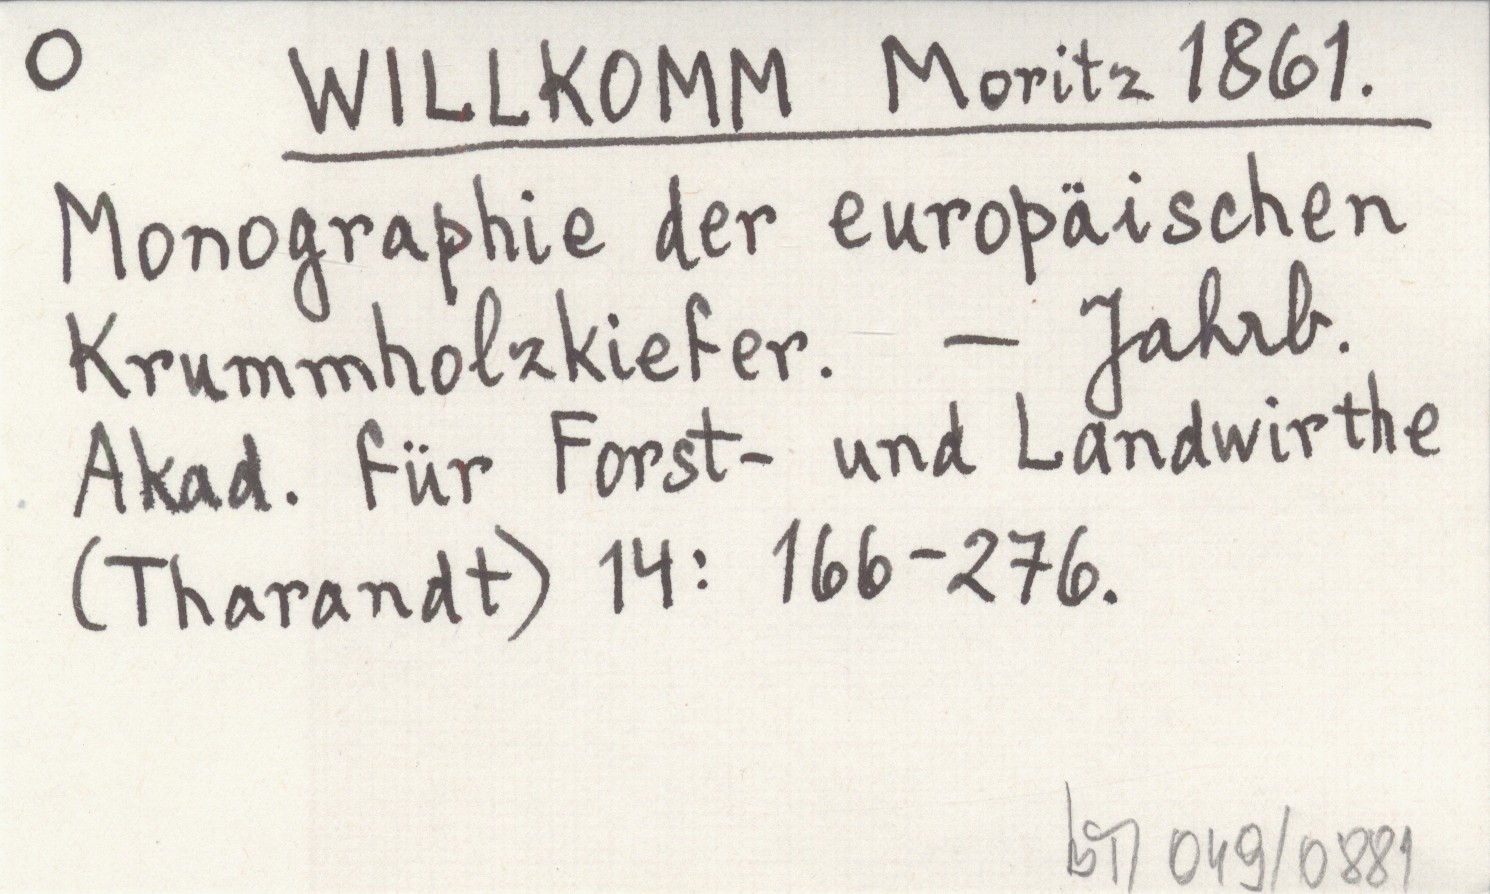 O WILLKOMM Moritz 1861.
Monographie der europäischen
Krummholzkiefer. – Jahrb.
Akad. für Forst- und Landwirthe
(Tharandt) 14: 166-276.
049/0881